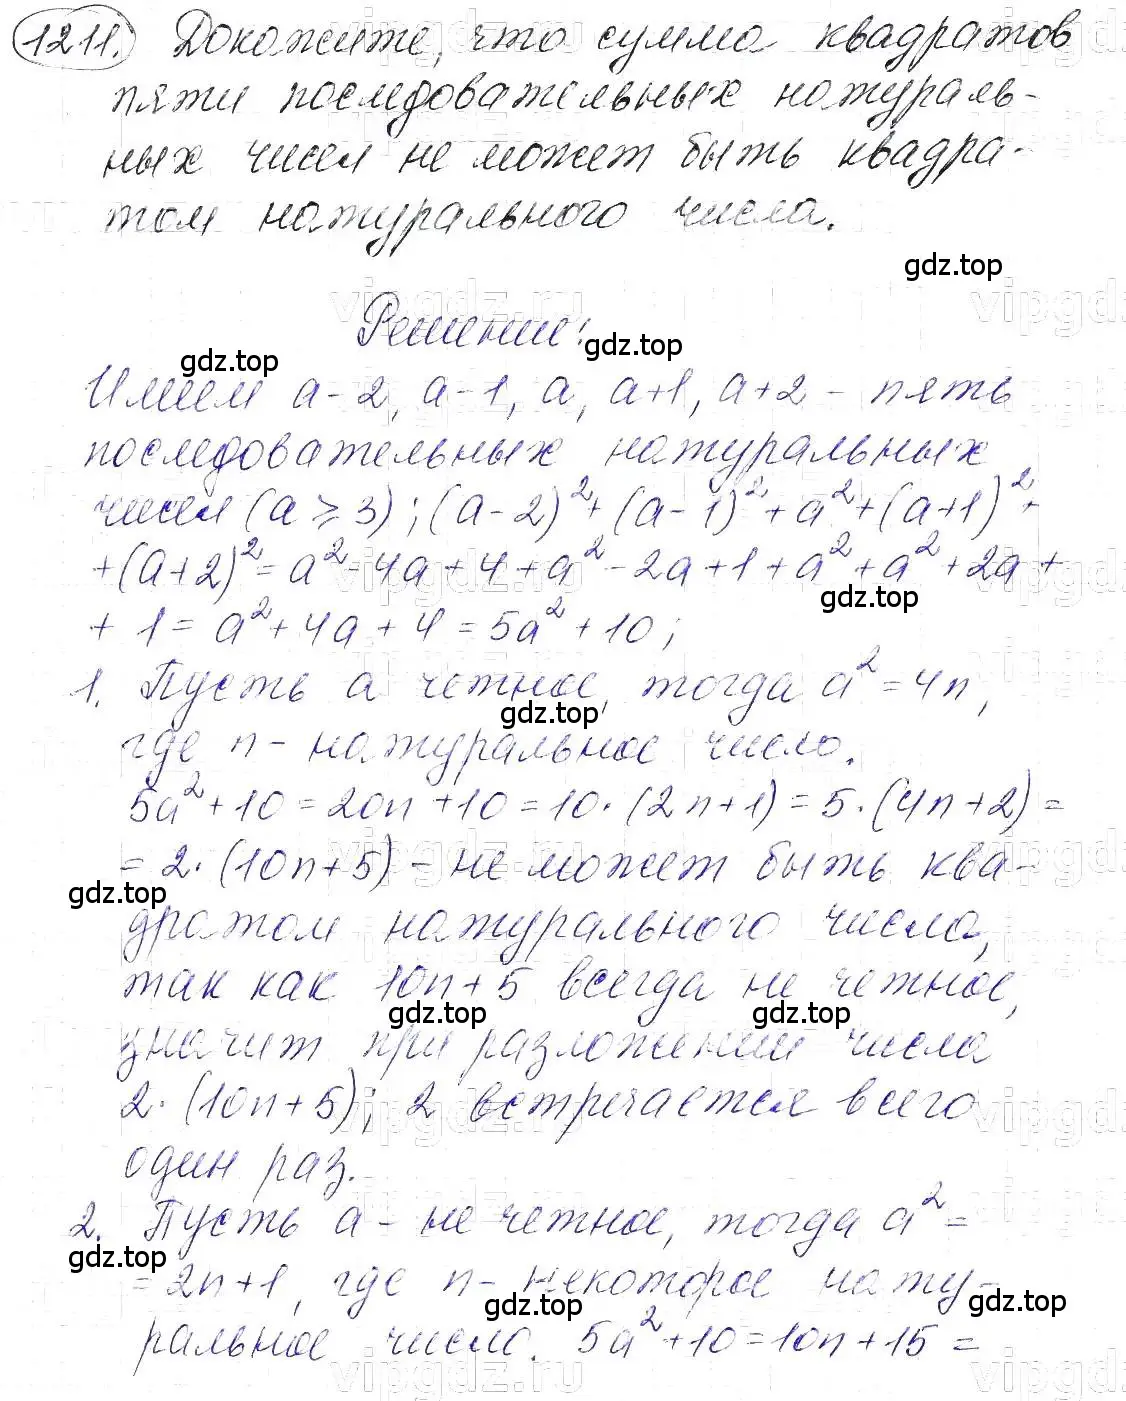 1211. Докажите, что сумма квадратов
пяти последовательных натураль-
ных чисел не может быть квадра-
том натурального числа.
gdz.top
Решение:
gdz.top gdz.top
Имеем a-2, a-1, a, a+1, a+2 - пять
последовательных натуральных
чисел (a ⩾ 3); (a-2)²+(a-1)²+a²+(a+1)²+
+(a+2)²=a²-4a+4+a²-2a+1+a²+a²+2a+
gdz.top
+ 1 = a²+4a+4=5a²+10;
1. Пусть a четное, тогда a²=4n,
gdz.top
где n - натуральное число.
5a²+10=20n+10=10·(2n+1)=5·(4n+2)=
=2·(10n+5) - не может быть ква-
gdz.top
дратом натурального числа,
так как 10n+5 всегда не четное,
gdz.top gdz.top
значит при разложении числа
2·(10n+5); 2 встречается всего
один раз.
2. Пусть a - не четное, тогда a²=
gdz.top
=2n+1, где n - некоторое нату-
gdz.top gdz.top
ральное число. 5a²+10=10n+15=
vipgdz.ru